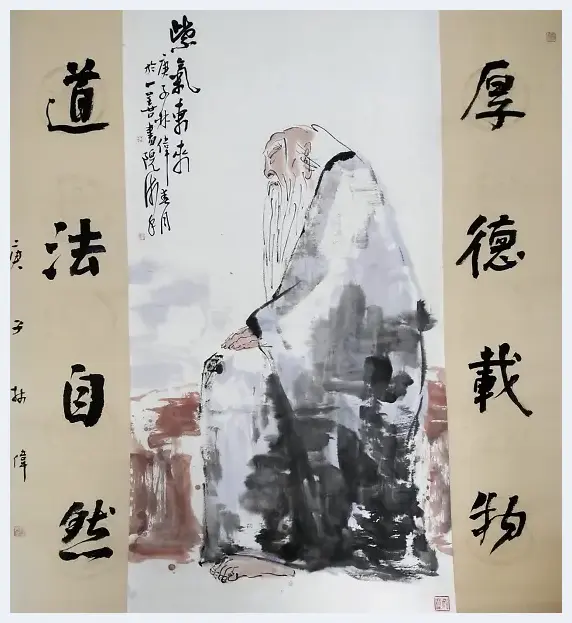 厚德載物
紫氣東来
庚子林偉春月
於一善書院
道法自然
庚子林偉